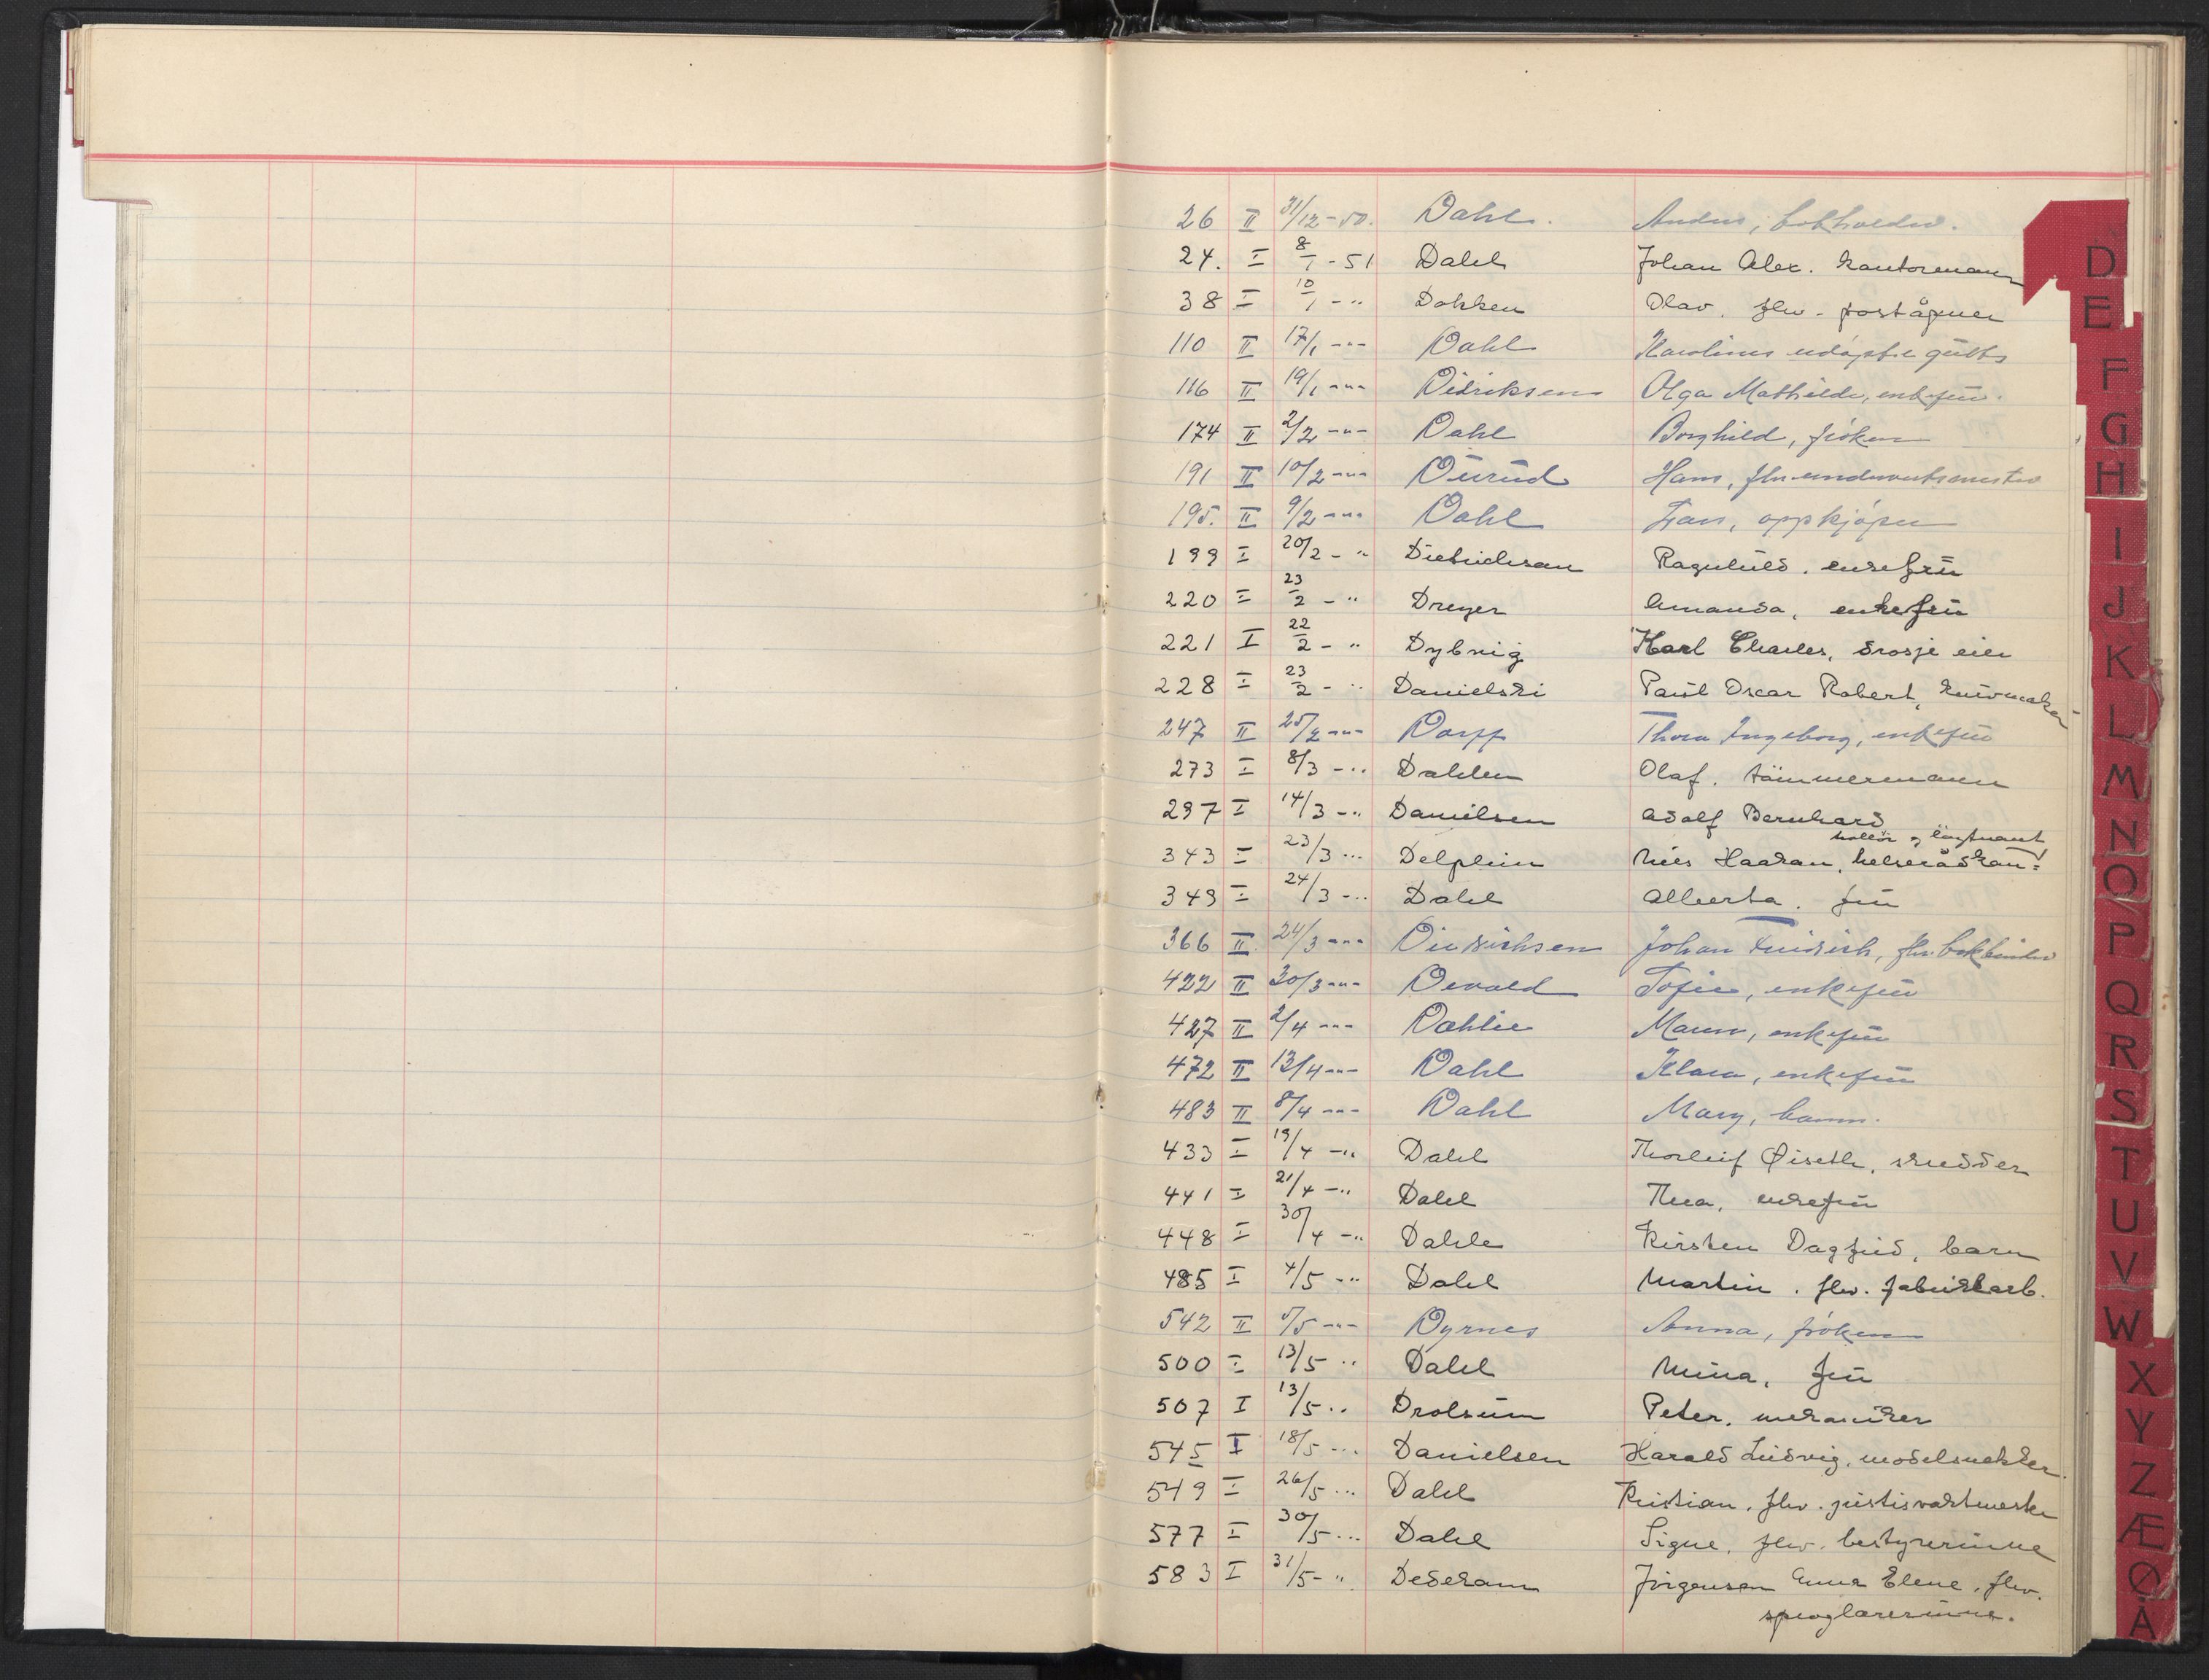 26 II 31/12-50. Dahl. Anders, bokholder.
24. I 8/1-51 Dahl Johan Alex. kontormann
38 I 10/1 - " Dokken Olav. fhv. poståpner
110 II 17/1 -"- Dahl Karolines udøpte gutt
116 II 19/1 -"- Didriksen Olga Mathilde, enkefrü.
174 II 2/2 -"- Dahl Borghild, frøken
191 II 10/2 -"- Dürüd Hans, fhv.
195. II 9/2 -"- Dahl Frans, oppkjøper
199 I 20/2 - " Dietrichson Ragnhild. enkefrü
220 I 23/2 - " Dreyer Amanda, enkefrü
221 I 22/2 - " Dybvig Karl Charles, drosje eier
228 I 23/2 - " Danielski Paül Oscar Robert,
247 II 25/2 -"- Dorff Thora Ingeborg, enkefrü
273 I 8/3 - " Dahlen Olaf. tömmermann
297 I 14/3 - " Danielsen Adolf Bernhard
343 I 23/3 - " Delphin Nils Haakan,
løytnant
349 I 24/3 - " Dahl Alberta. frü
366 II 24/3 -"- Diedrichsen Johan Fridrich, fhv. bokbinder
422 II 30/3 -"- Devold Sofie, enkefrü
427 II 2/4 -"- Dahlie Maren, enkefrü
472 II 13/4 -"- Dahl Klara, enkefrü
483 II 8/4 -"- Dahl Mary, barn.
433 I 19/4 - " Dahl Thorleif Øiseth, skredder
441 I 21/4 - " Dahl Thea, enkefrü
448 I 30/4 - " Dahle Kirsten Dagfrid, barn
485 I 4/5 - " Dahl Martin. fhv. fabrikkarb.
542 II 5/5 -"- Dyrnes Anna, frøken
500 I 13/5 " Dahl Mina, frü
507 I 13/5 " Drolsüm Peter, mekaniker
545 I 18/5 - " Danielsen Harald Lüdvig, modelsnekker.
549 I 26/5 - " Dahl Kristian. fhv.
577 I 30/5 - " Dahl Signe, fhv. bestyrerinne
583 I 31/5 - " Dedekam Jörgensen Anna Elene, fhv.
spraglærerinne.
D
E
F
G
H
I
J
K
L
M
N
O
P
Q
R
S
T
U
V
W
X
Y
Z
Æ
Ø
Å